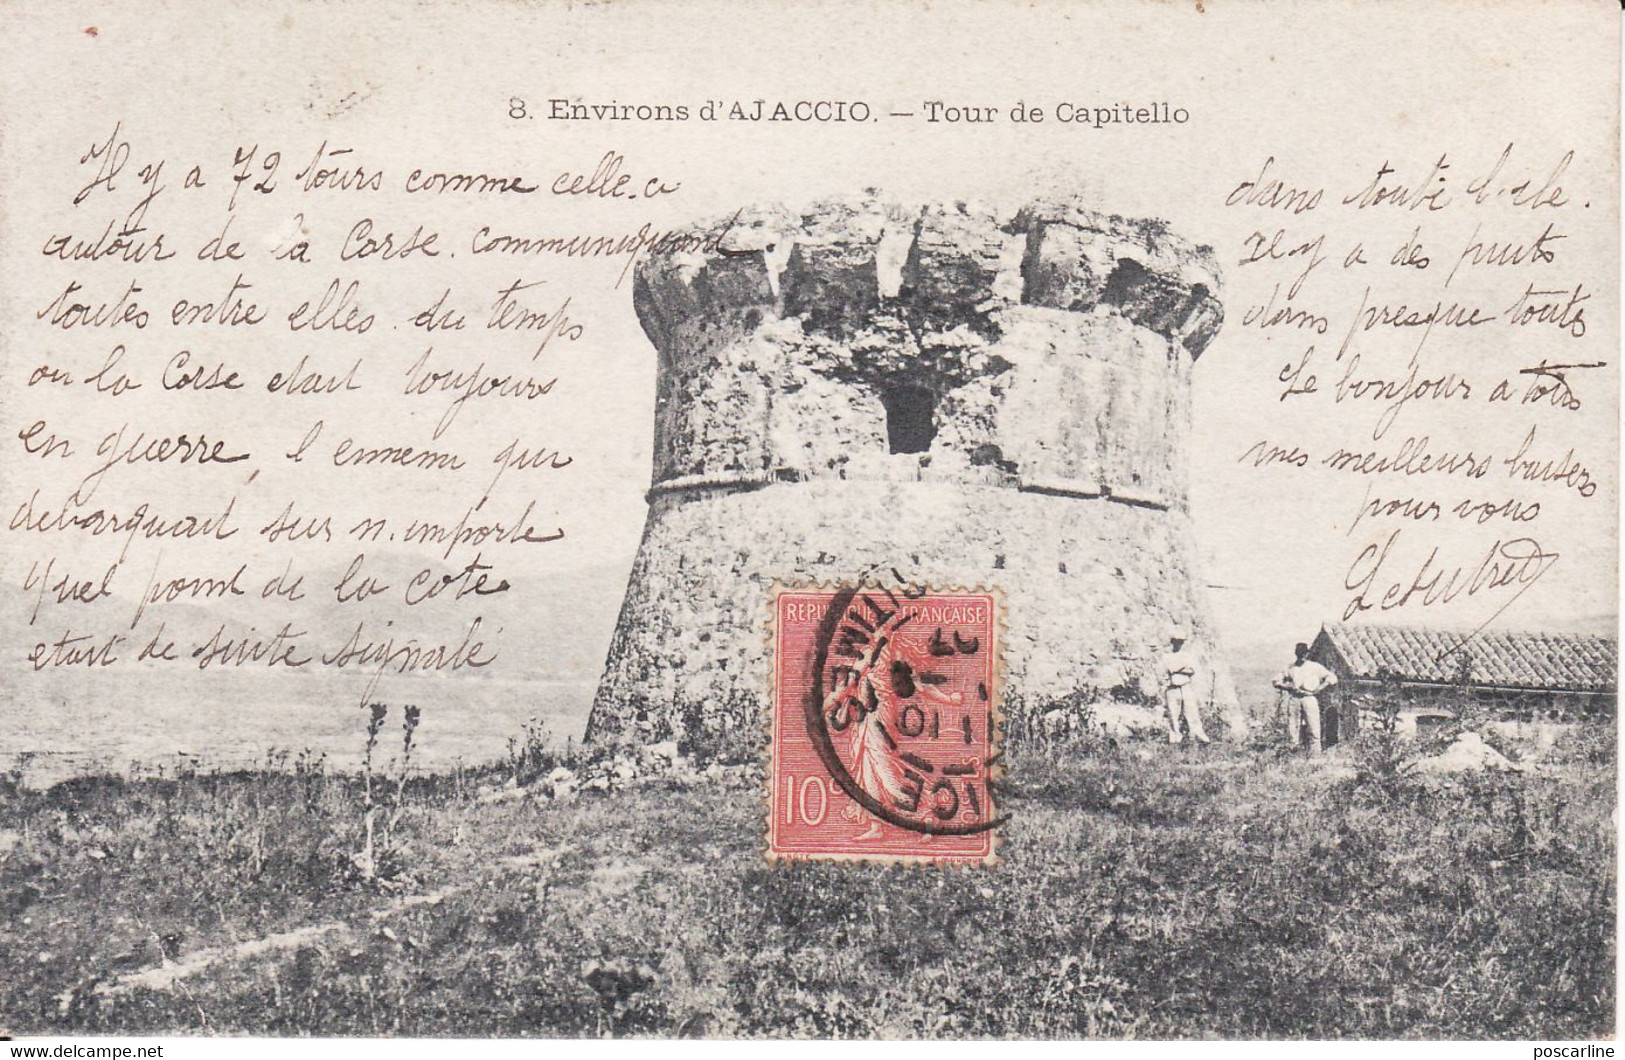 8. Environs d'AJACCIO. — Tour de Capitello
Il y a 72 tours comme celle.ci
autour de la Corse. communiquant
toutes entre elles. du temps
ou la Corse etait toujours
en guerre, l ennemi qui
debarquait sur n.importe
quel point de la cote
etait de suite signalé
dans toute l.ile.
Il y a des puits
dans presque toutes
Le bonjour a tous
mes meilleurs baisers
pour vous
REPUBLIQUE FRANÇAISE
10c
POSTES
NICE
poscarline